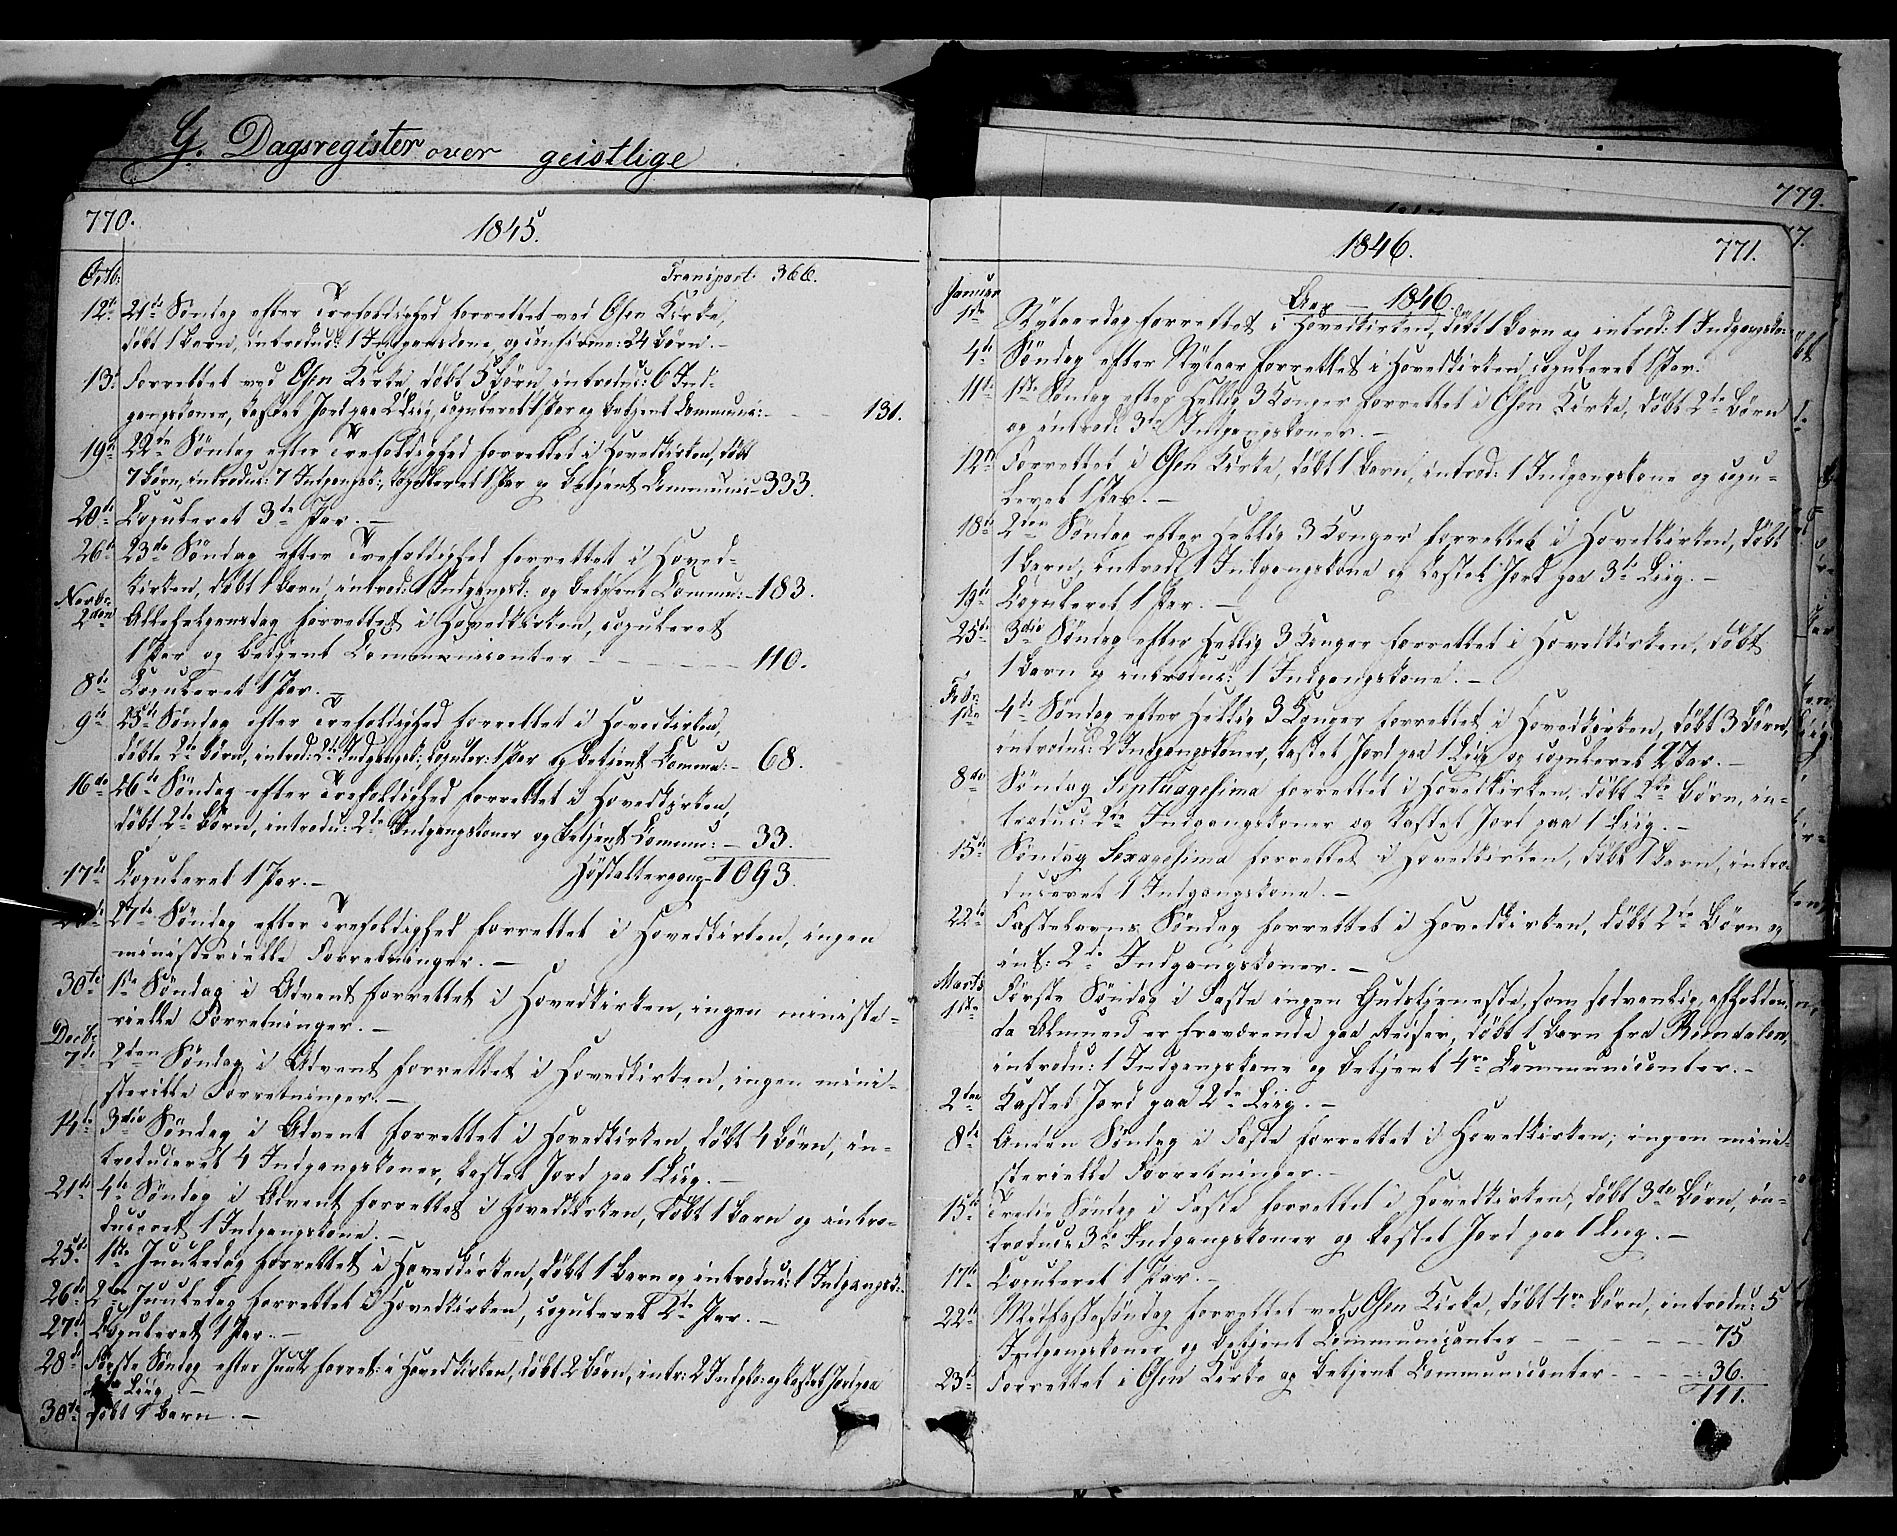 G. Dagsregister over geistlige
770.
1845.
Octb: Transport: 366.
12te 21de Søndag efter Trefoldighed forrettet ved Osen Kirke,
døbt 1 Barn, introdu: 1 Indgangskone, og confirme: 24 Børn. –
13de Forrettet ved Osen Kirke, døbt 5 Børn, introdus: 6 Ind-
gangskoner, kastet Jord paa 2 Liig, copuleret 1 Par og betjent Communi: – – – 131.
19de 22de Søndag efter Trefoldighed forrettet i Hovedkirken, døbt
7 Børn, introdus: 7 Indgangsk:, copuleret 1 Par og betjent Communi – 333.
20de Copuleret 3de Par. –
26de 23de Søndag efter Trefoldighed forrettet i Hoved-
kirken, døbt 1 Barn, introd: 1 Indgangsk: og betjent Commu: – 183.
Novbr:
2den Allehelgensdag forrettet i Hovedkirken, copuleret
1 Par og betjent Communicanter – – – – – 110.
8de Copuleret 1 Par. –
9de 25de Søndag efter Trefoldighed forrettet i Hovedkirken,
døbte 2de Børn, introd: 2de Indgangsk:, copuler: 1 Par og betjent Commu: – 68.
16de 26de Søndag efter Trefoldighed forrettet i Hovedkirken,
døbt 2de Børn, introdu: 2de Indgangskoner og betjent Commun: – 33.
17de Copuleret 1 Par. – Høstaltergang – 1093.
27de Søndag efter Trefoldighed forrettet i Hovedkirken, ingen
ministerielle Forretninger. –
30te 1ste Søndag i Advent forrettet i Hovedkirken, ingen ministe-
rielle Forretninger. –
Decbr
7de 2den Søndag i Advent forrettet i Hovedkirken, ingen mini-
sterielle Forretninger. –
14de 3die Søndag i Advent forrettet i Hovedkirken, døbt 4 Børn, in-
troduceret 4 Indgangskoner, kastet Jord paa 1 Liig. –
21de 4de Søndag i Advent forrettet i Hovedkirken, døbt 1 Barn og intro-
duceret 1 Indgangskone. –
25de 1ste Juuledag forrettet i Hovedkirken, døbt 1 Barn og introdus: 1 Indgangsk:
26de 2den Juuledag forrettet i Hovedkirken, copuleret 2de Par. –
27de Copuleret 1 Par. –
28de Første Søndag efter Juul forret: i Hovedkirken, døbt 2 Børn, intr: 2 Indgko: og kastet Jord paa
Liig. –
30te døbt 1 Barn. –
779.
7.
1846.
771.
Januar
Aar – 1846.
1ste Nytaarsdag forrettet i Hovedkirken, døbt 1 Barn og introd: 1 Indgangsko:
4de Søndag efter Nytaar forrettet i Hovedkirken, copuleret 1 Par.
11te 1ste Søndag efter Hellig 3 Konger forrettet i Osen Kirke, døbt 2de Børn
og introd: 3de Indgangskoner. –
12te Forrettet i Osen Kirke, døbt 1 Barn, introd: 1 Indgangskone og copu-
leret 1 Par. –
18de 2den Søndag efter Hellig 3 Konger forrettet i Hovedkirken, døbt
1 Barn, introd: 1 Indgangskone og kastet Jord paa 3de Liig. –
19de Copuleret 1 Par. –
25de 3die Søndag efter Hellig 3 Konger forrettet i Hovedkirken, døbt
1 Barn og introdus: 1 Indgangskone. –
Febr:
1ste 4de Søndag efter Hellig 3 Konger forrettet i Hovedkirken, døbt 3 Børn,
introdus: 2 Indgangskoner, kastet Jord paa 1 Liig og copuleret 2 Par. –
8de Søndag Septuagesima forrettet i Hovedkirken, døbt 2de Børn, in-
trodus: 2de Indgangskoner og kastet Jord paa 1 Liig. –
15de Søndag Sexagesima forrettet i Hovedkirken, døbt 1 Barn, intro-
duceret 1 Indgangskone. –
22de Fastelavns Søndag forrettet i Hovedkirken, døbt 2de Børn og
int: 2de Indgangskoner. –
Marts
1ste Første Søndag i Faste ingen Gudstjeneste, som sædvanlig, afholden,
da Almuen er fraværende paa Reiser, døbt 1 Barn fra Rendalen,
introdu: 1 Indgangskone og betjent 4re Communicanter. –
2den Kastet Jord paa 2de Liig. –
8de Anden Søndag i Faste forrettet i Hovedkirken, ingen mini-
sterielle Forretninger. –
15de Tredie Søndag i Faste forrettet i Hovedkirken, døbt 3de Børn, in-
trodus: 3de Indgangskoner og kastet Jord paa 1 Liig. –
17de Copuleret 1 Par. –
22de Midfastesøndag forrettet ved Osen Kirke, døbt 4re Børn, introdu: 5
Indgangskoner og betjent Communicanter – – – – – 75
23de Forrettet i Osen Kirke og betjent Communicanter – – – – 36.
111.